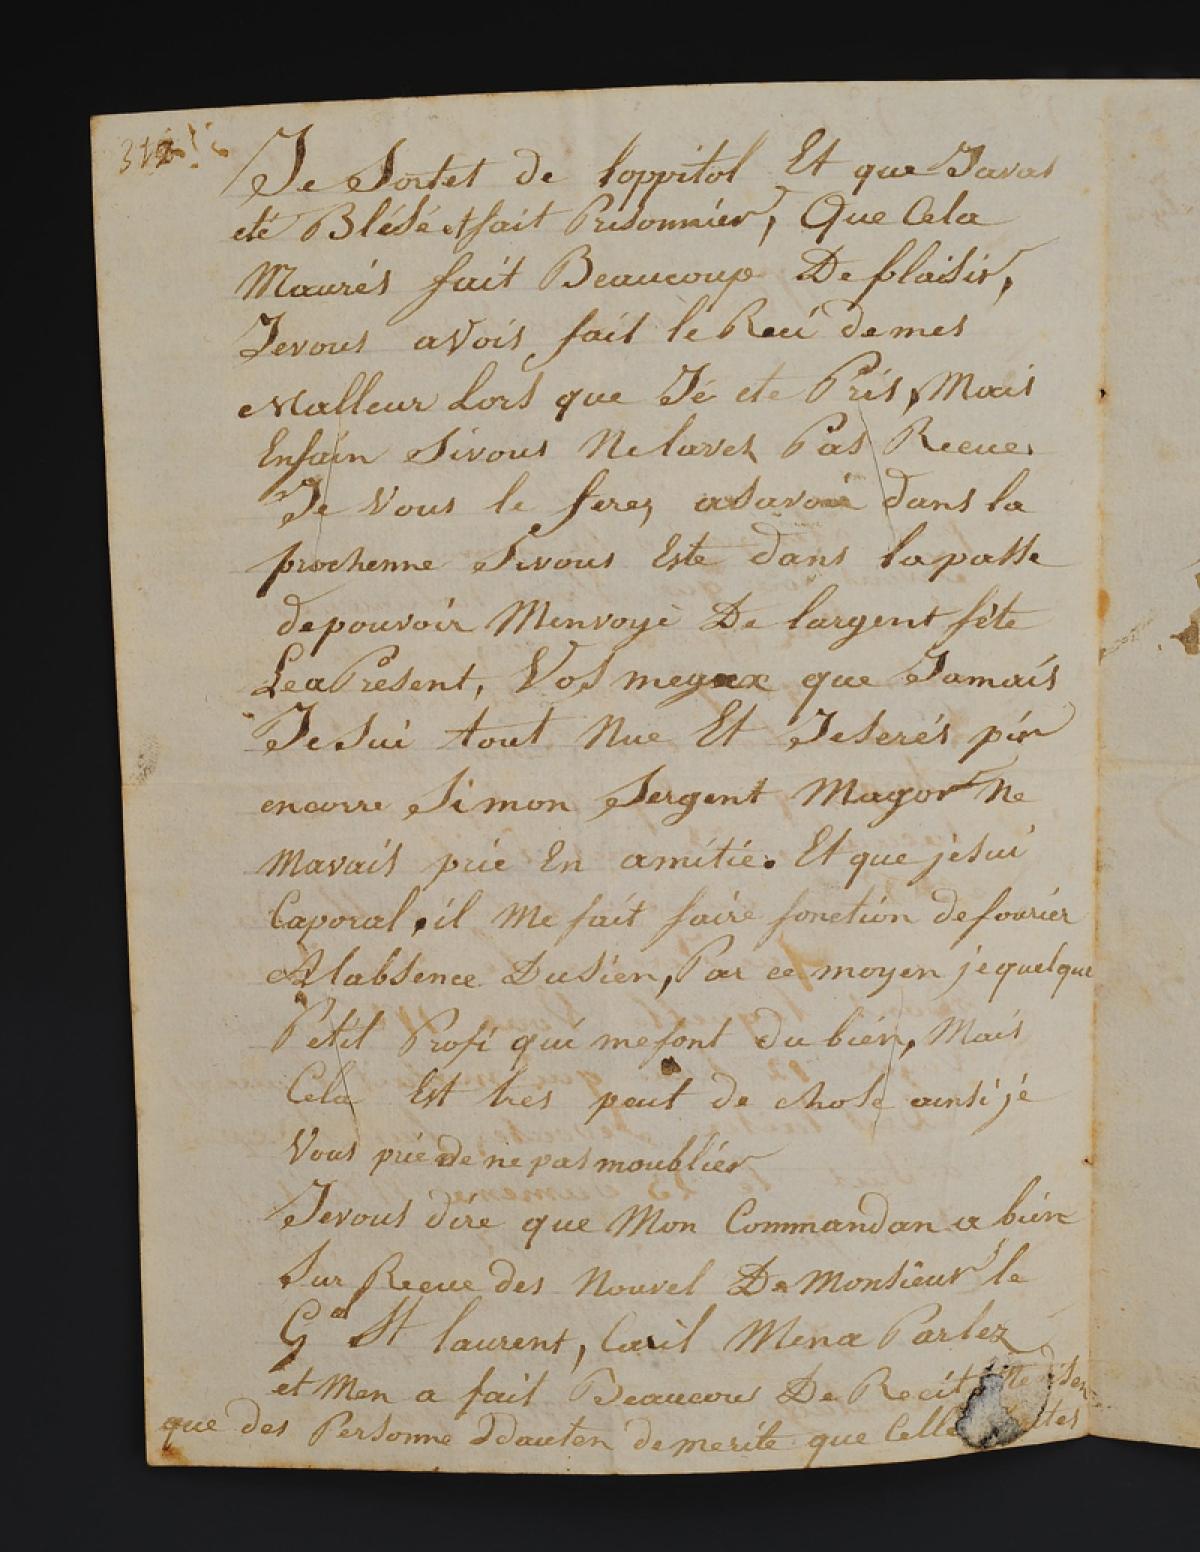 312
Je Sortet de loppitol Et que Javas
eté Blésé et fait Prisonnier, Que Cela
Maurés fait Beaucoup De plaisir,
Jevous avois fait le Reci de mes
Malleur Lors que Jé ete Pris, Mais
Enfain Sivous Ne lavez Pas Recue
Je Vous le ferez a Savoir dans la
prochenne Sivous Este dans la passe
depouvoir Menvoyé De largent féte
Lea Present, Vos meyux que Jamais
Je Sui tout Nue Et Jeserés pir
encorre Simon Sergent Magor Ne
Mavais prie En amitié. Et que je sui
Caporal, il Me fait faire fonction de fourier
A labsence Du Sien, Par ce moyen je quelque
Petit Profi qui me font du bien, Mais
Cela Est tres peut de chose ainsi je
Vous prie de ne pas moublier
Jevous dire que Mon Commandan a bien
Sur Recue des Nouvel De Monsieur le
Gal St laurent, Caril Mena Parlez
et Men a fait Beaucou De Recit
que des Personne Ddauten demerite que Celle